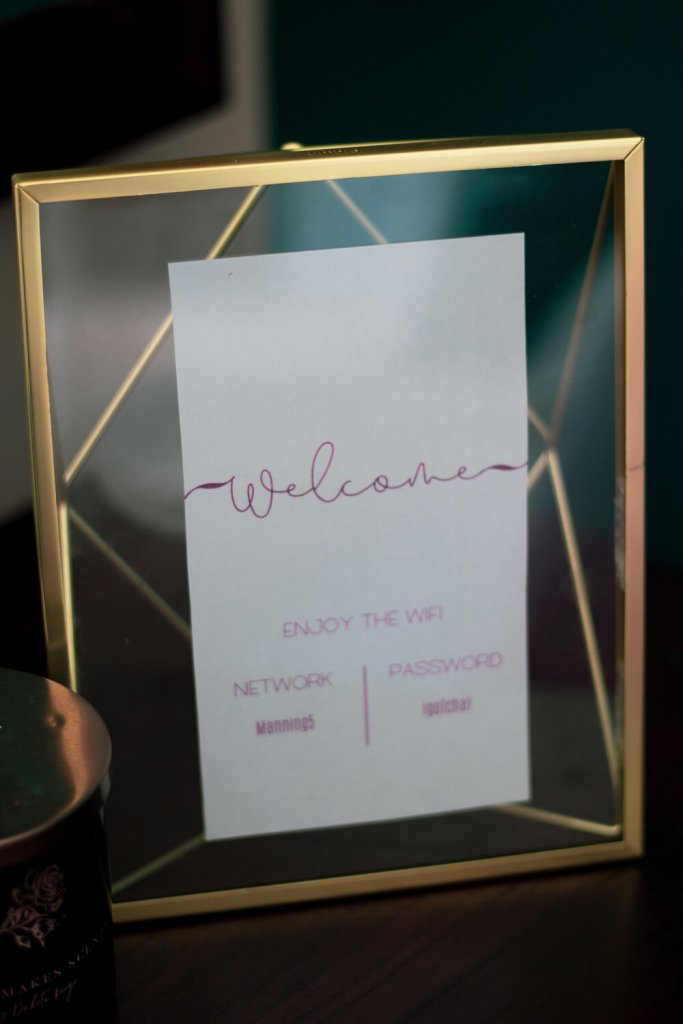 Welcome
ENJOY THE WIFI
NETWORK
PASSWORD
Manning5
MAKES SCENTS